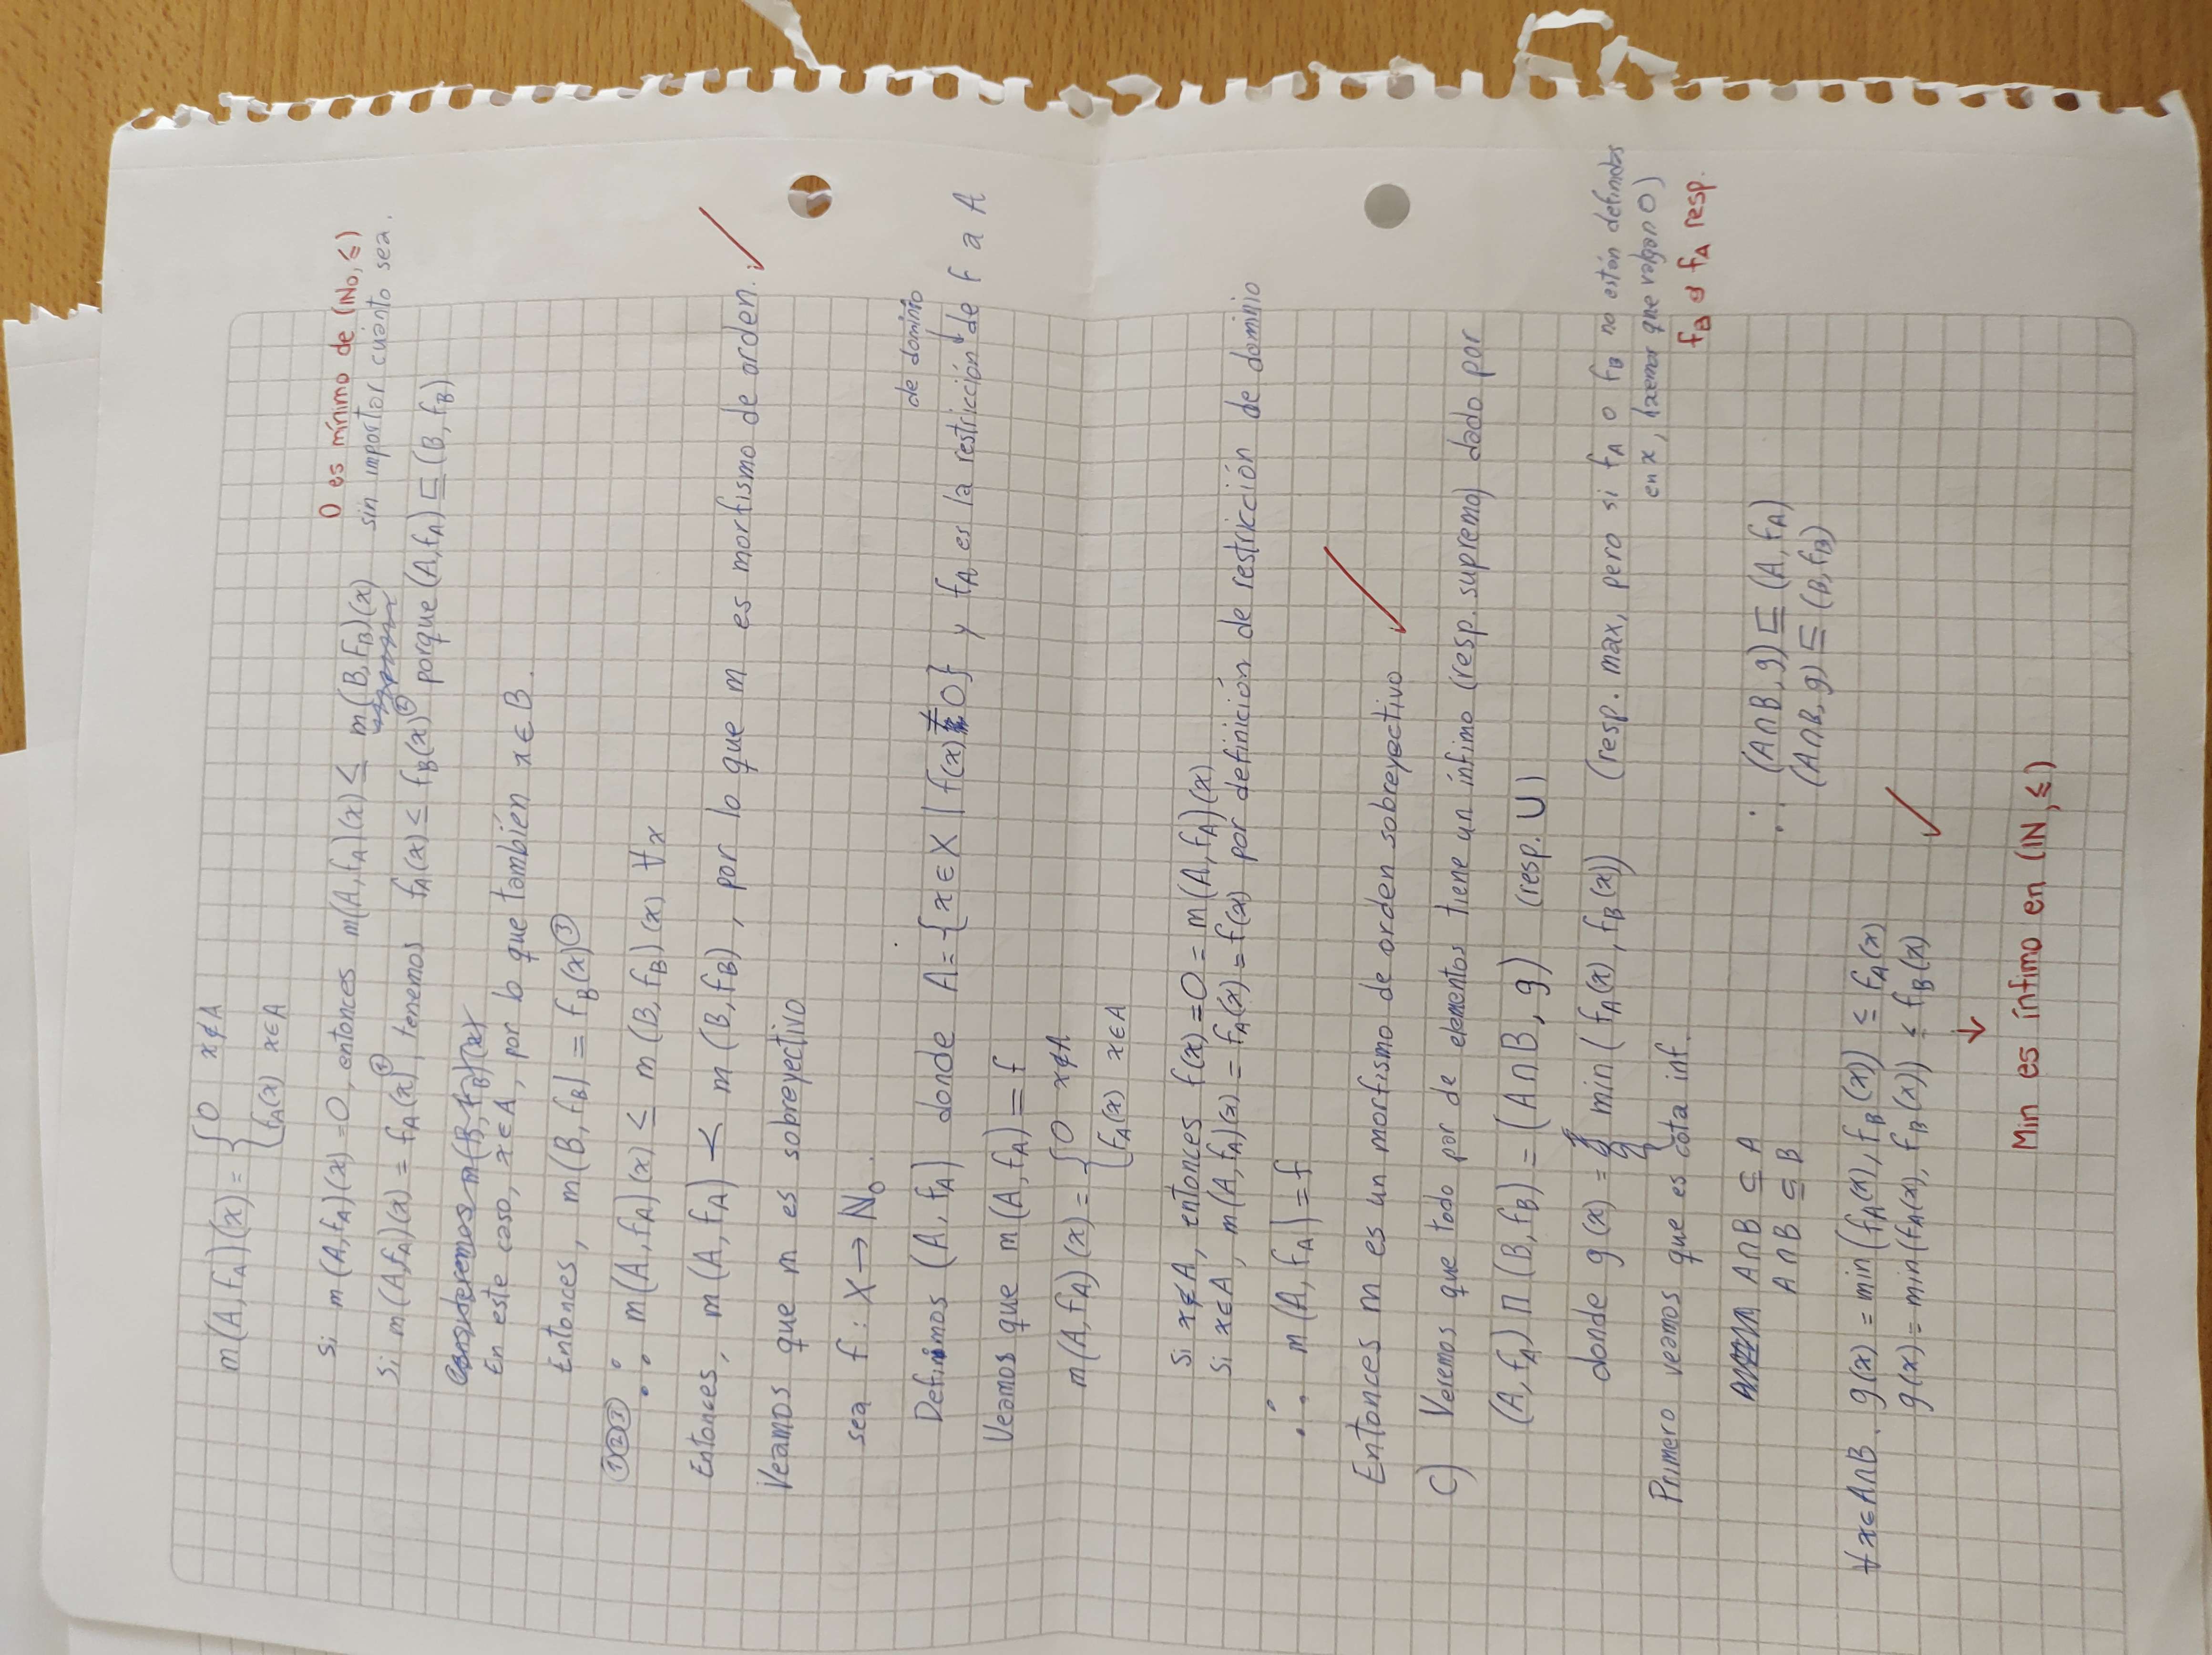 m(A, f_A)(x) = { 0 x∉A
f_A(x) x∈A
0 es mínimo de (ℕ₀, ≤)
Si m(A, f_A)(x) = 0, entonces m(A, f_A)(x) ≤ m(B, f_B)(x) sin importar cuánto sea.
Si m(A, f_A)(x) = f_A(x)①, tenemos f_A(x) ≤ f_B(x)② porque (A, f_A) ⊑ (B, f_B)
Consideremos m(B, f_B)(x)
En este caso, x∈A, por lo que también x∈B.
Entonces, m(B, f_B) = f_B(x)③
①②③
∴ m(A, f_A)(x) ≤ m(B, f_B)(x) ∀x
Entonces, m(A, f_A) ≺ m(B, f_B), por lo que m es morfismo de orden. ✓
Veamos que m es sobreyectivo
sea f: X → ℕ₀.
de dominio
Definimos (A, f_A) donde A = {x∈X | f(x) ≠ 0} y f_A es la restricción de f a A
Veamos que m(A, f_A) = f
m(A, f_A)(x) = { 0 x∉A
f_A(x) x∈A
Si x∉A, entonces f(x) = 0 = m(A, f_A)(x)
Si x∈A, m(A, f_A)(x) = f_A(x) = f(x) por definición de restricción de dominio
∴ m(A, f_A) = f
Entonces m es un morfismo de orden sobreyectivo ✓
C) Veremos que todo par de elementos tiene un ínfimo (resp. supremo) dado por
(A, f_A) ⊓ (B, f_B) = (A∩B, g) (resp. ∪)
donde g(x) = min(f_A(x), f_B(x)) (resp. max, pero si f_A o f_B no están definidos
en x, haremos que valgan 0)
f_B y f_A resp.
Primero veamos que es cota inf.
A∩B ⊆ A
A∩B ⊆ B
∴ (A∩B, g) ⊑ (A, f_A)
(A∩B, g) ⊑ (B, f_B)
∀x∈A∩B, g(x) = min(f_A(x), f_B(x)) ≤ f_A(x)
g(x) = min(f_A(x), f_B(x)) ≤ f_B(x) ✓
↓
Min es ínfimo en (ℕ, ≤)